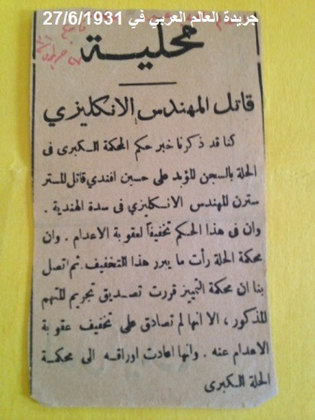 جريدة العالم العربي في 27/6/1931
محلية
قاتل المهندس الانكليزي
كنا قد ذكرنا خبر حكم المحكمة الكبرى فى
الحلة بالسجن المؤبد على حسين افندي قاتل المستر
سترن المهندس الانكليزي فى سدة الهندية .
وان فى هذا الحكم تخفيفاً لعقوبة الاعدام . وان
محكمة الحلة رأت ما يبرر هذا التخفيف . ثم اتصل
بنا ان محكمة التمييز قررت تصديق تجريم المتهم
المذكور ، الا انها لم تصادق على تخفيف عقوبة
الاعدام عنه . وانها اعادت اوراقه الى محكمة
الحلة الكبرى